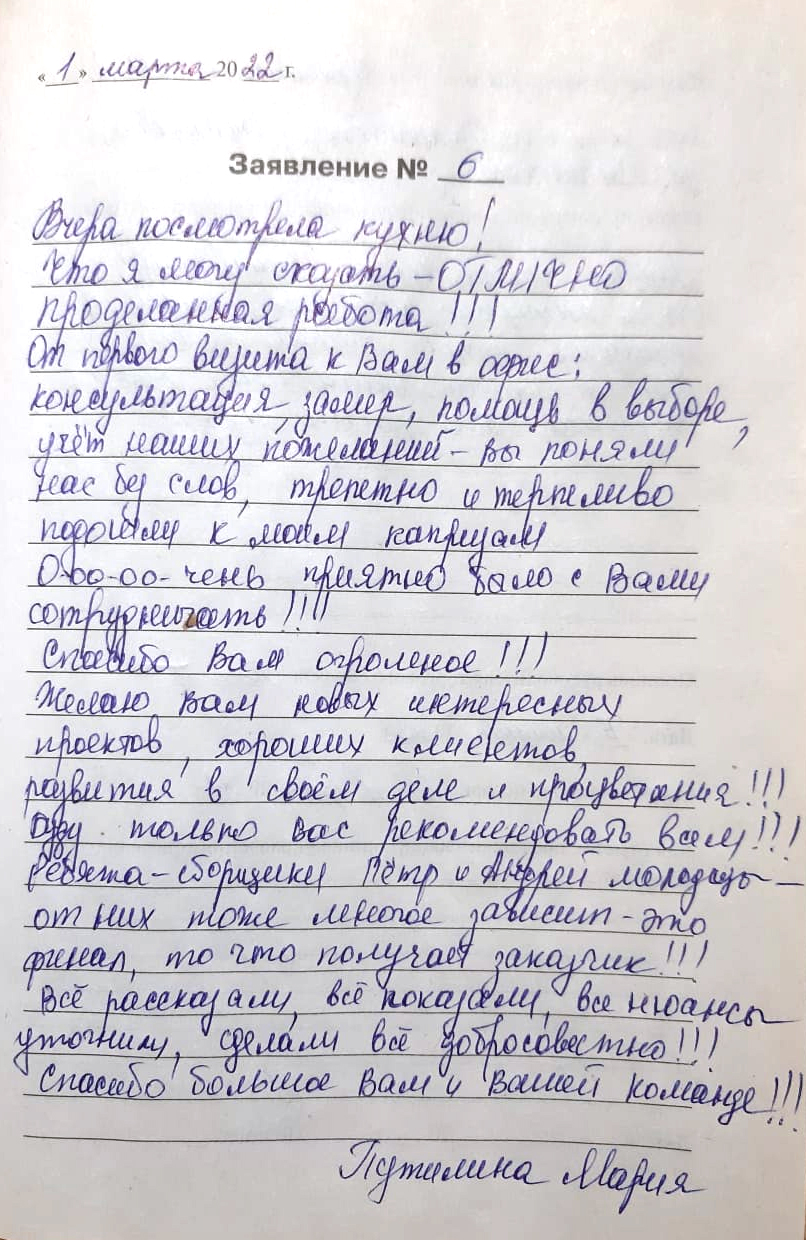 « 1 » марта 2022 г.
Заявление № 6
Вчера посмотрела кухню!
Что я могу сказать – ОТЛИЧНО
проделанная работа !!!
От первого визита к Вам в офис:
консультация, замер, помощь в выборе,
учёт наших пожеланий – вы поняли
нас без слов, трепетно и терпеливо
подошли к моим капризам
О-оо-оо-чень приятно было с Вами
сотрудничать !!!!
Спасибо Вам огромное !!!
Желаю вам новых интересных
проектов, хороших клиентов,
развития в своём деле и процветания !!!
Буду только вас рекомендовать всем !!!
Ребята – сборщики Пётр и Андрей молодцы –
от них тоже многое зависит – это
финал, то что получает заказчик !!!
Всё рассказали, всё показали, все нюансы
уточнили, сделали всё добросовестно !!!
Спасибо большое Вам и Вашей команде !!!
Путилина Мария